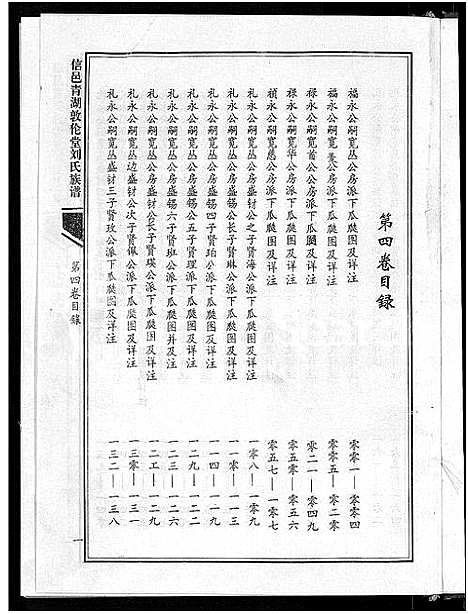 第四卷目錄
福永公嗣寬 公房派下瓜瓞图及详注 零零一—零零四
福永公嗣寬 公房派下瓜瓞图及详注 零零五—零二零
禄永公嗣寬 公房派下瓜瓞图及详注 零二一—零四九
禄永公嗣寬华公房派下瓜瓞图及详注 零五零—零五六
祯永公嗣寬 公房派下瓜瓞图及详注 零五七—一零七
礼永公嗣寬丛公房盛 公之子贤海公派下瓜瓞图及详注 一零八—一零九
礼永公嗣寬丛公房盛锡公长子贤琳公派下瓜瓞图及详注 一一零—一一三
礼永公嗣寬丛公房盛锡四子贤珀公派下瓜瓞图及详注 一一四—一一八
礼永公嗣寬丛公房盛锡公五子贤理派下瓜瓞图及详注 一一九—一二二
礼永公嗣寬丛公房盛锡六子贤班公派下瓜瓞图并及注 一二三—一二六
礼永公嗣寬丛公房盛 公长子贤瑛公派下瓜瓞图及详注 一二 —一二九
礼永公嗣寬丛边盛 公次子贤 公派下瓜瓞图及详注 一三零—一三一
礼永公嗣寬丛盛 三子贤玫公派下瓜瓞图及详注 一三二—一三八
信邑青湖敦伦堂刘氏族谱
第四卷目錄
一